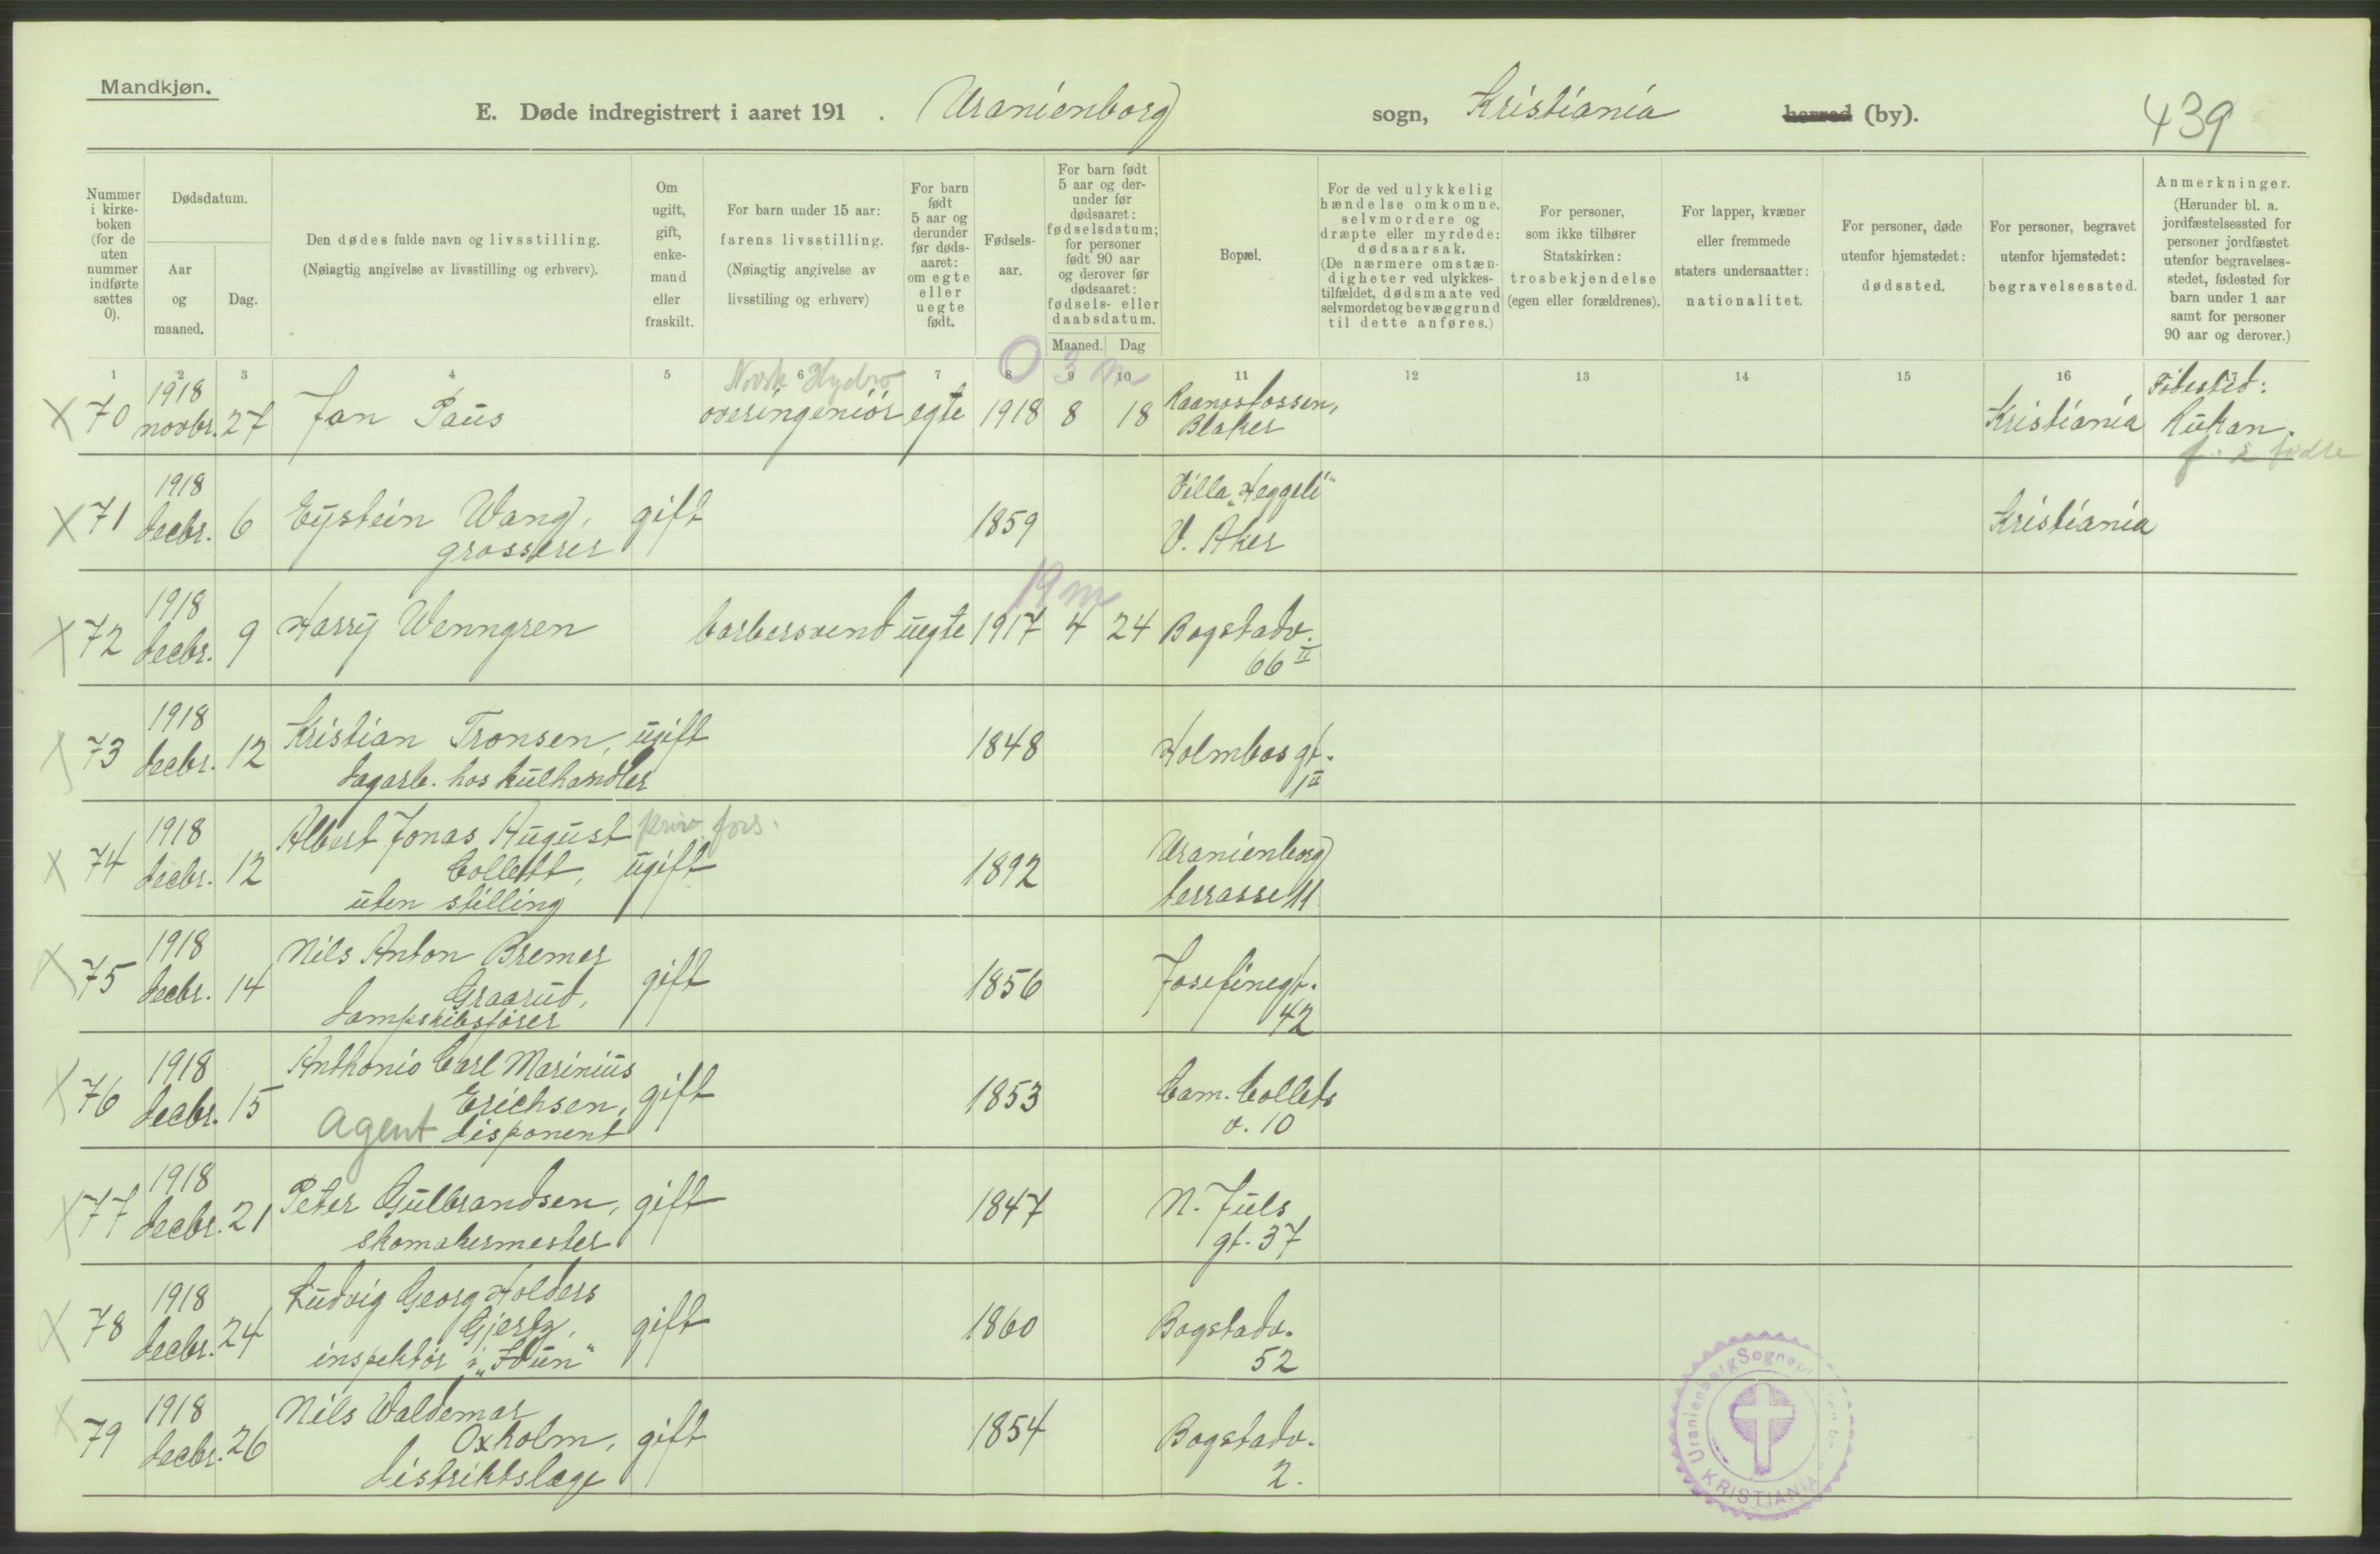 Mandkjøn.
E. Døde indregistrert i aaret 191 . Uranienborg sogn, Kristiania herred (by).
439
Nummer i kirke-boken (for de uten nummer indførte sættes 0).
Dødsdatum.
Aar og maaned.
Dag.
Den dødes fulde navn og livsstilling.
(Nøiagtig angivelse av livsstilling og erhverv).
Om ugift, gift, enke-mand eller fraskilt.
For barn under 15 aar: farens livsstilling.
(Nøiagtig angivelse av livsstiling og erhverv)
For barn født 5 aar og derunder før døds-aaret: om egte eller uegte født.
Fødsels-aar.
For barn født 5 aar og der-under før dødsaaret: fødselsdatum; for personer født 90 aar og derover før dødsaaret: fødsels- eller daabsdatum.
Maaned. Dag
Bopæl.
For de ved ulykkelig hændelse omkomne, selvmordere og dræpte eller myrdede: dødsaarsak.
(De nærmere omstæn-digheter ved ulykkes-tilfældet, dødsmaate ved selvmordet og bevæggrund til dette anføres.)
For personer, som ikke tilhører Statskirken: trosbekjendelse (egen eller forældrenes).
For lapper, kvæner eller fremmede staters undersaatter: nationalitet.
For personer, døde utenfor hjemstedet: dødssted.
For personer, begravet utenfor hjemstedet: begravelsessted.
Anmerkninger.
(Herunder bl. a. jordfæstelsessted for personer jordfæstet utenfor begravelses-stedet, fødested for barn under 1 aar samt for personer 90 aar og derover.)
1 2 3 4 5 6 7 8 9 10 11 12 13 14 15 16 17
Norsk Hydro 0 3 m
X 70 1918 novbr. 27 Jan Paus overingeniør egte 1918 8 18 Raanosfossen, Blaker Kristiania Födested: Rukan.
X 71 1918 decbr. 6 Eystein Wang, grosserer gift 1859 Villa "Heggeli" V. Aker Kristiania
19 m
X 72 1918 decbr. 9 Harry Wenngren barbersvend uegte 1917 4 24 Bogstadv. 66 II
73 1918 decbr. 12 Kristian Tronsen, dagarb. hos kulhandler ugift 1848 Holmbos gt. 1 II
priv. fors.
X 74 1918 decbr. 12 Albert Jonas August Collett, uten stilling ugift 1892 Uranienborg terrasse 11
X 75 1918 decbr. 14 Nils Anton Bremer Graarud, dampskibsfører gift 1856 Josefinegt. 42
X 76 1918 decbr. 15 Anthonio Carl Marinius Erichsen, Agent disponent gift 1853 Cam. Colletts v. 10
X 77 1918 decbr. 21 Peter Gulbrandsen, skomakermester gift 1847 N. Juls gt. 37
X 78 1918 decbr. 24 Ludvig Georg Holders Gjertz, inspektør i "Idun" gift 1860 Bogstadv. 52
X 79 1918 decbr. 26 Nils Waldemar Oxholm, distriktslæge gift 1854 Bogstadv. 2.
Uranienborg Sogne
KRISTIANIA